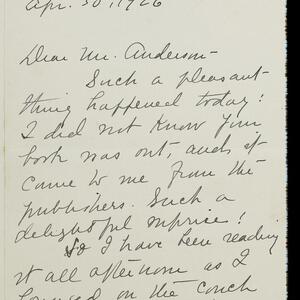 Apr. 30, 1926
Dear Mr. Anderson -
Such a pleasant
thing happened today!
I did not know your
book was out, and it
came to me from the
publishers. Such a
delightful surprise!
So I have been reading
it all afternoon as I
lounged on the couch